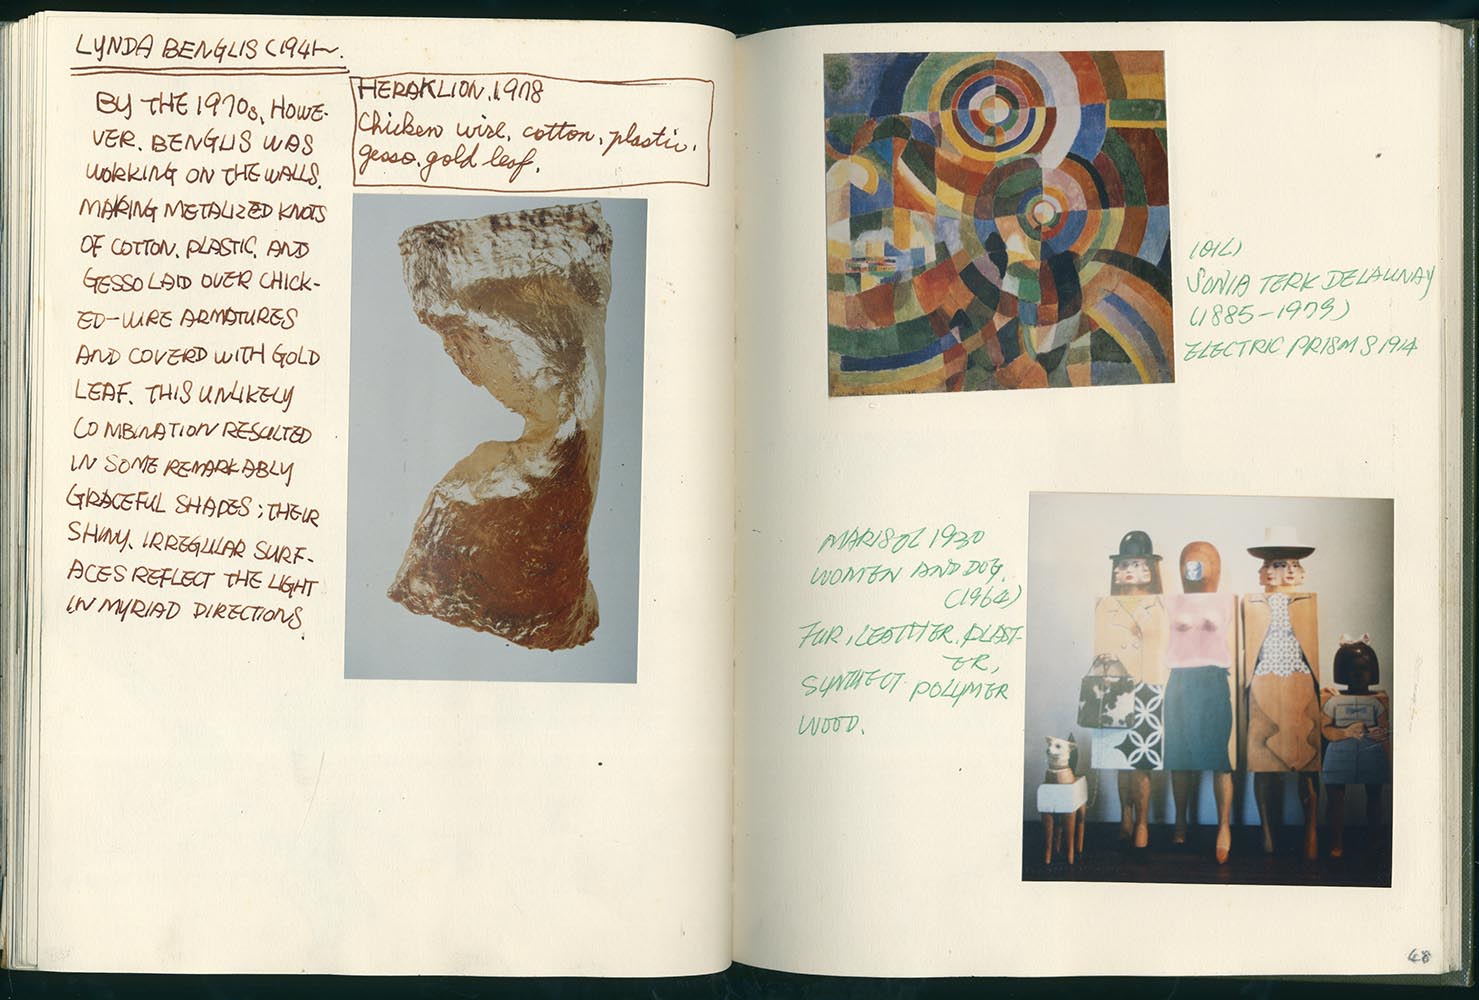 LYNDA BENGLIS (1941~.
BY THE 1970s, HOWE-
VER. BENGLIS WAS
WORKING ON THE WALLS.
MAKING METALIZED KNOTS
OF COTTON. PLASTIC, AND
GESSO LAID OVER CHICK-
ED-WIRE ARMATURES
AND COVERD WITH GOLD
LEAF. THIS UNLIKELY
COMBINATION RESULTED
IN SOME REMARKABLY
GRACEFUL SHAPES; THEIR
SHINY. IRREGULAR SURF-
ACES REFLECT THE LIGHT
IN MYRIAD DIRECTIONS.
HERAKLION. 1978
Chicken wire. cotton. plastic.
gesso. gold leaf.
(OIL)
SONIA TERK DELAUNAY
(1885-1979)
ELECTRIC PRISMS 1914
MARISOL 1930
WOMEN AND DOG.
(1964)
FUR, LEATHER. PLAST-
ER,
SYNTHECT. POLYMER
WOOD.
48